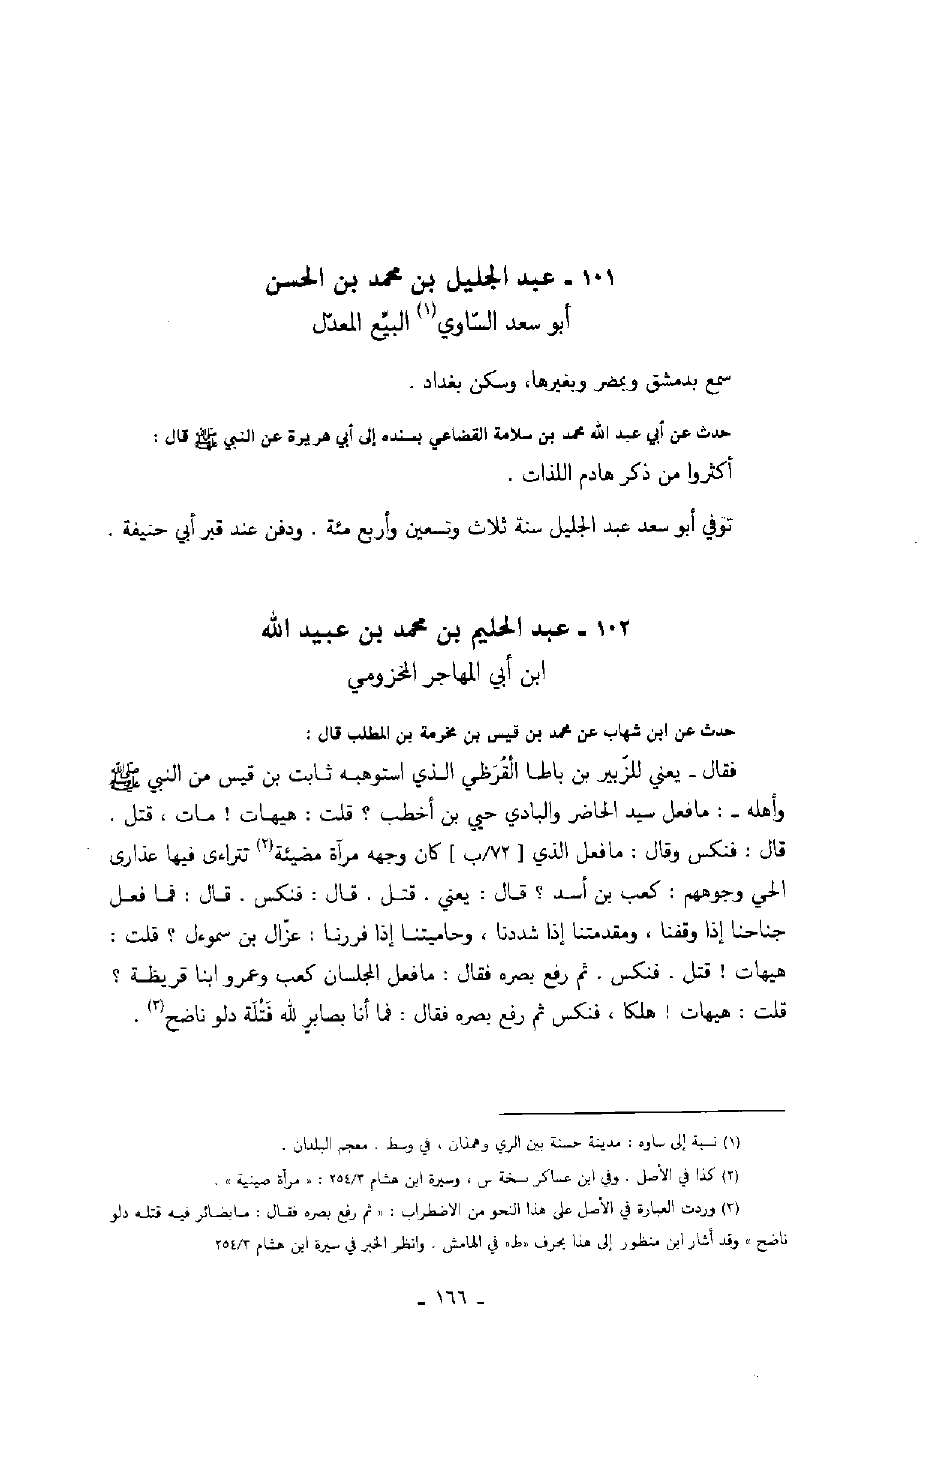 ١٠١ ـ عبد الجليل بن محمد بن الحسن
أبو سعد السّاوي(١) البيّع المعدّل
سمع بدمشق وبمصر وبغيرها، وسكن بغداد .
حدث عن أبي عبد الله محمد بن سلامة القضاعي بسنده إلى أبي هريرة عن النبي ﷺ قال :
أكثروا من ذكر هادم اللذات .
توفي أبو سعد عبد الجليل سنة ثلاث وتسعين وأربع مئة . ودفن عند قبر أبي حنيفة .
١٠٢ ـ عبد الحليم بن محمد بن عبيد الله
ابن أبي المهاجر المخزومي
حدث عن ابن شهاب عن محمد بن قيس بن مخرمة بن المطلب قال :
فقال ـ يعني للزّبير بن باطا القُرَظي الذي استوهبه ثابت بن قيس من النبي ﷺ
وأهله ـ : مافعل سيد الحاضر والبادي حيي بن أخطب ؟ قلت : هيهات ! مات ، قتل .
قال : فنكس وقال : مافعل الذي [ ٧٢/ب ] كان وجهه مرآة مضيئة(٢) تتراءى فيها عذارى
الحي وجوههم : كعب بن أسد ؟ قال : يعني . قتل . قال : فنكس . قال : فما فعل
جناحنا إذا وقفنا ، ومقدمتنا إذا شددنا ، وحاميتنا إذا فررنا : عزّال بن سموءل ؟ قلت :
هيهات ! قتل . فنكس . ثم رفع بصره فقال : مافعل المجلسان كعب وعمرو ابنا قريظة ؟
قلت : هيهات ! هلكا ، فنكس ثم رفع بصره فقال : فما أنا بصابرٍ لله قَتْلَة دلو ناضح(٣) .
(١) نسبة إلى ساوه : مدينة حسنة بين الري وهمذان ، في وسط . معجم البلدان .
(٢) كذا في الأصل . وفي ابن عساكر سخة س ، وسيرة ابن هشام ٢٥٤/٣ : « مرآة صينية » .
(٣) وردت العبارة في الأصل على هذا النحو من الاضطراب : « ثم رفع بصره فقال : مابضائر فيه قتله دلو
ناضح » وقد أشار ابن منظور إلى هذا بحرف «ط» في الهامش . وانظر الخبر في سيرة ابن هشام ٢٥٤/٣
ـ ١٦٦ ـ